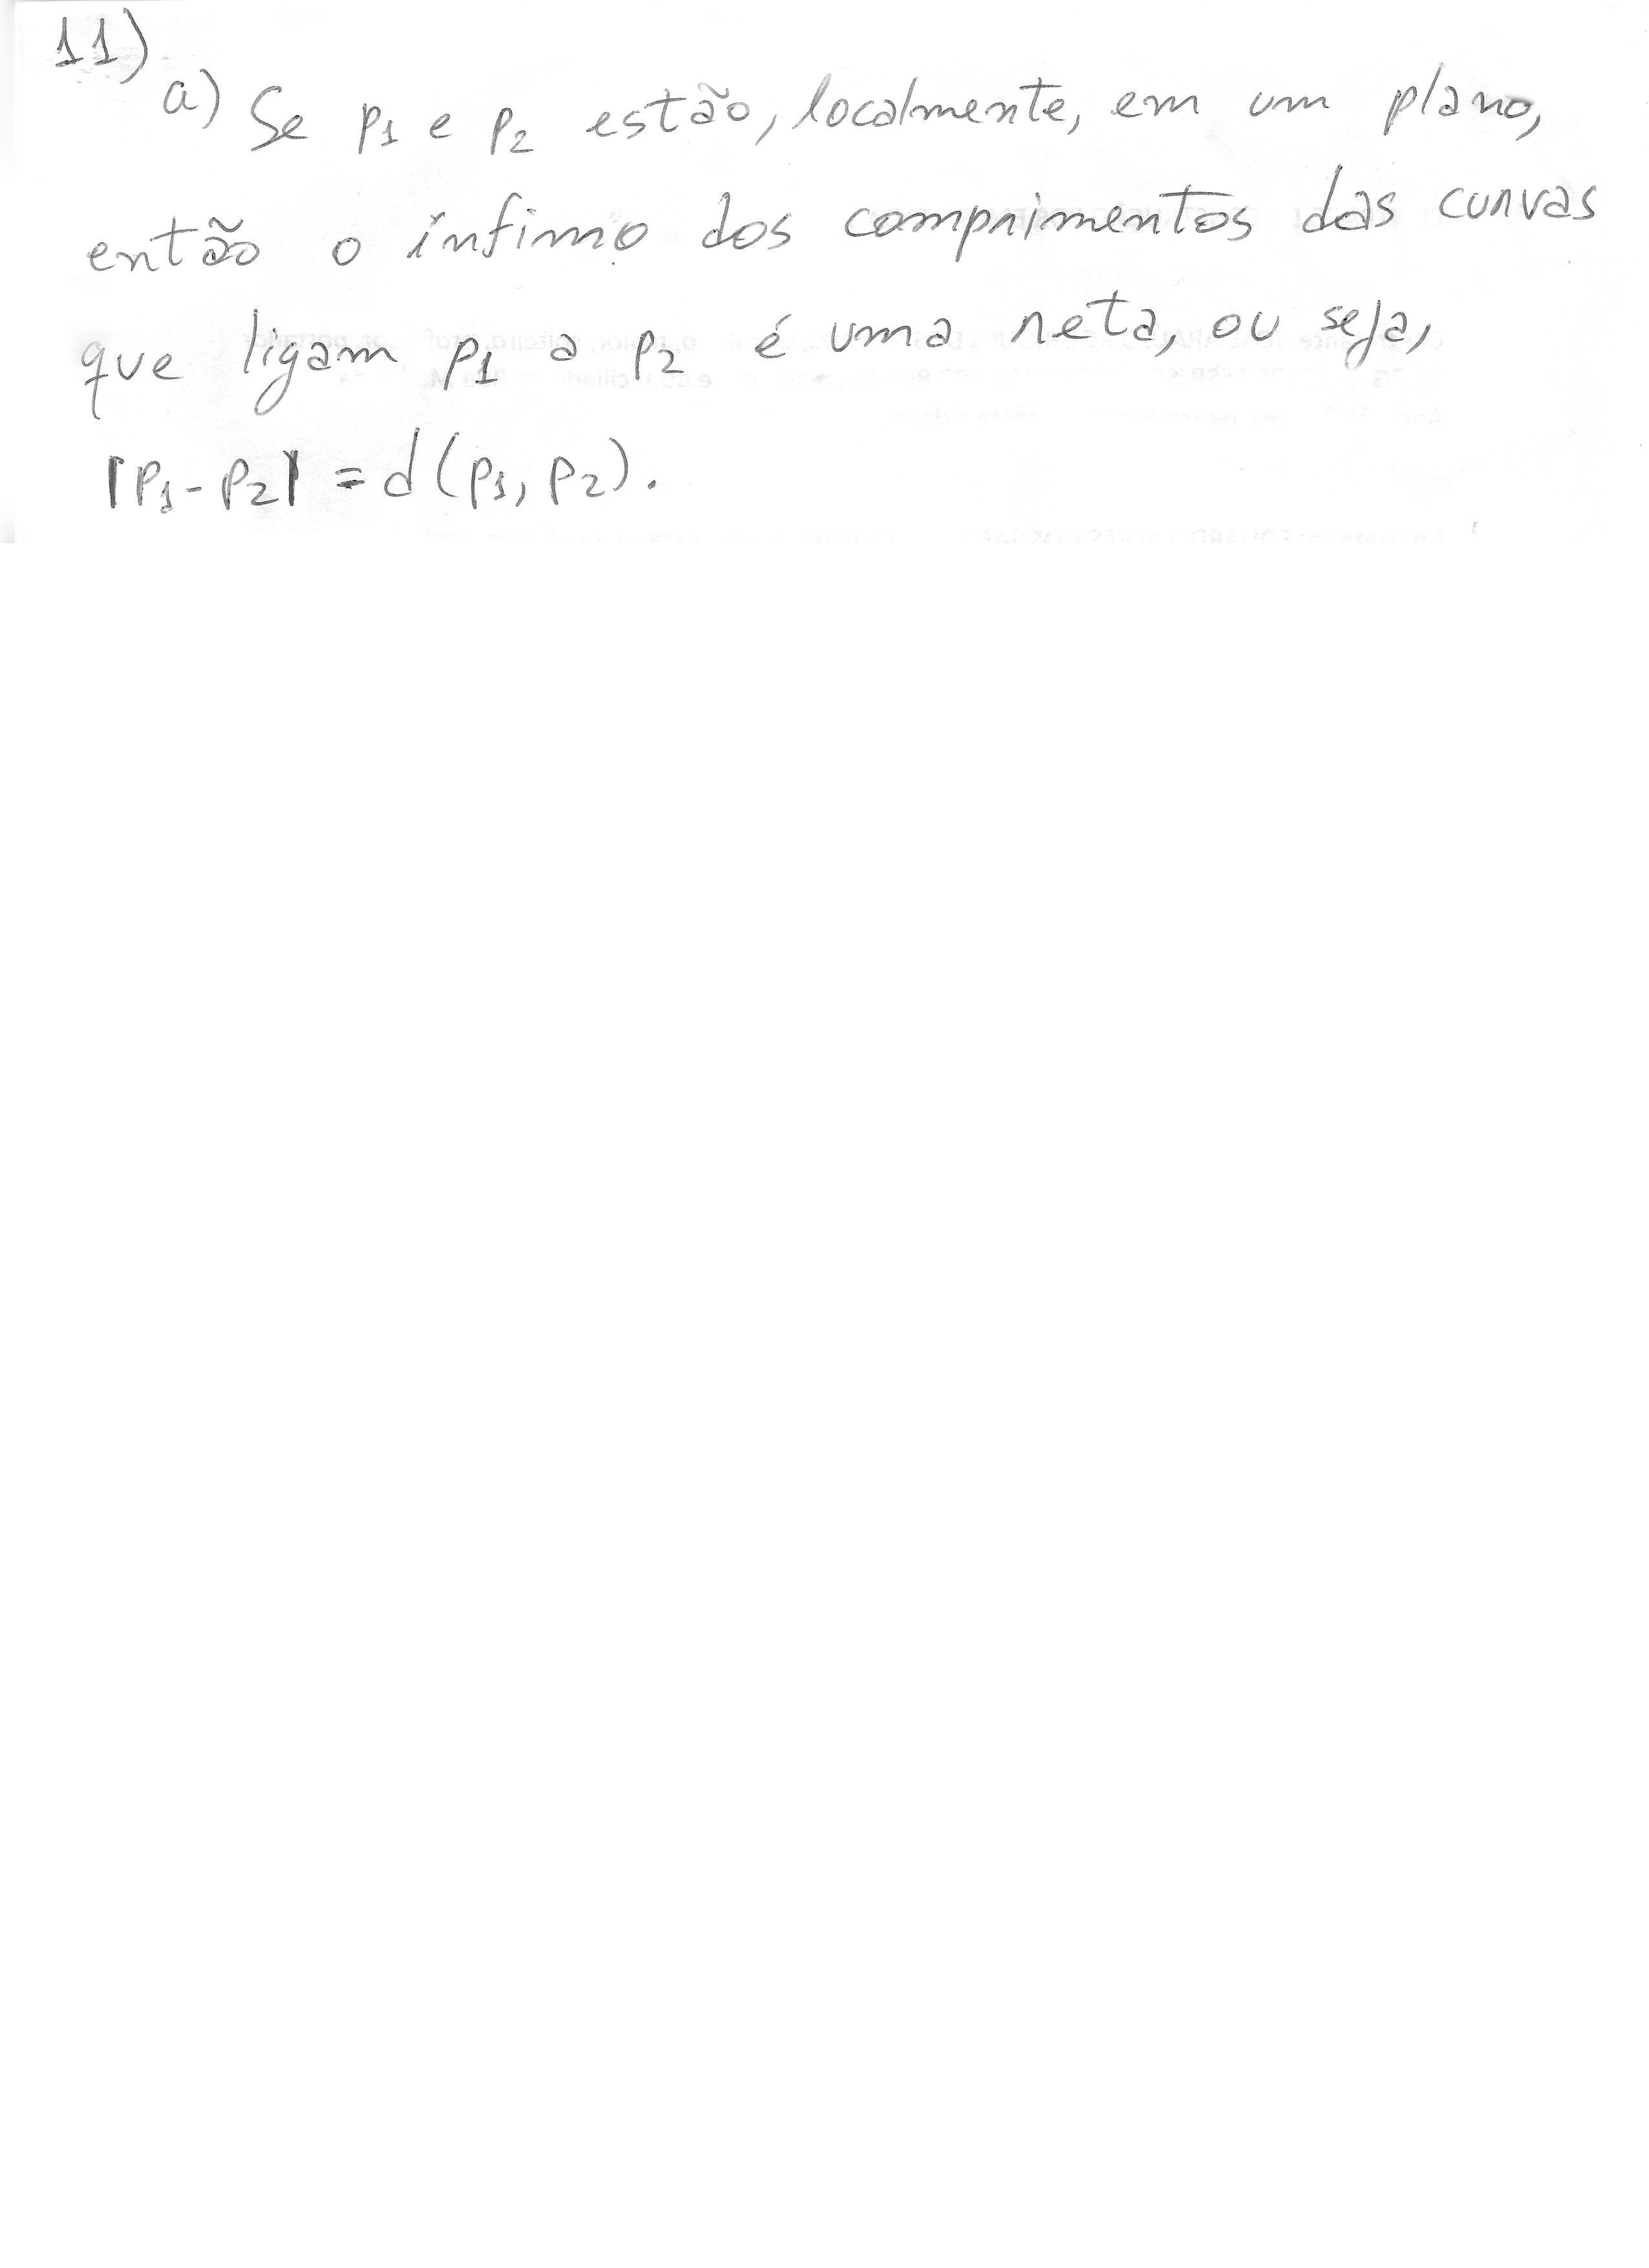 11)
a) Se p1 e p2 estão, localmente, em um plano,
então o ínfimo dos comprimentos das curvas
que ligam p1 a p2 é uma reta, ou seja,
|p1-p2| = d(p1, p2).